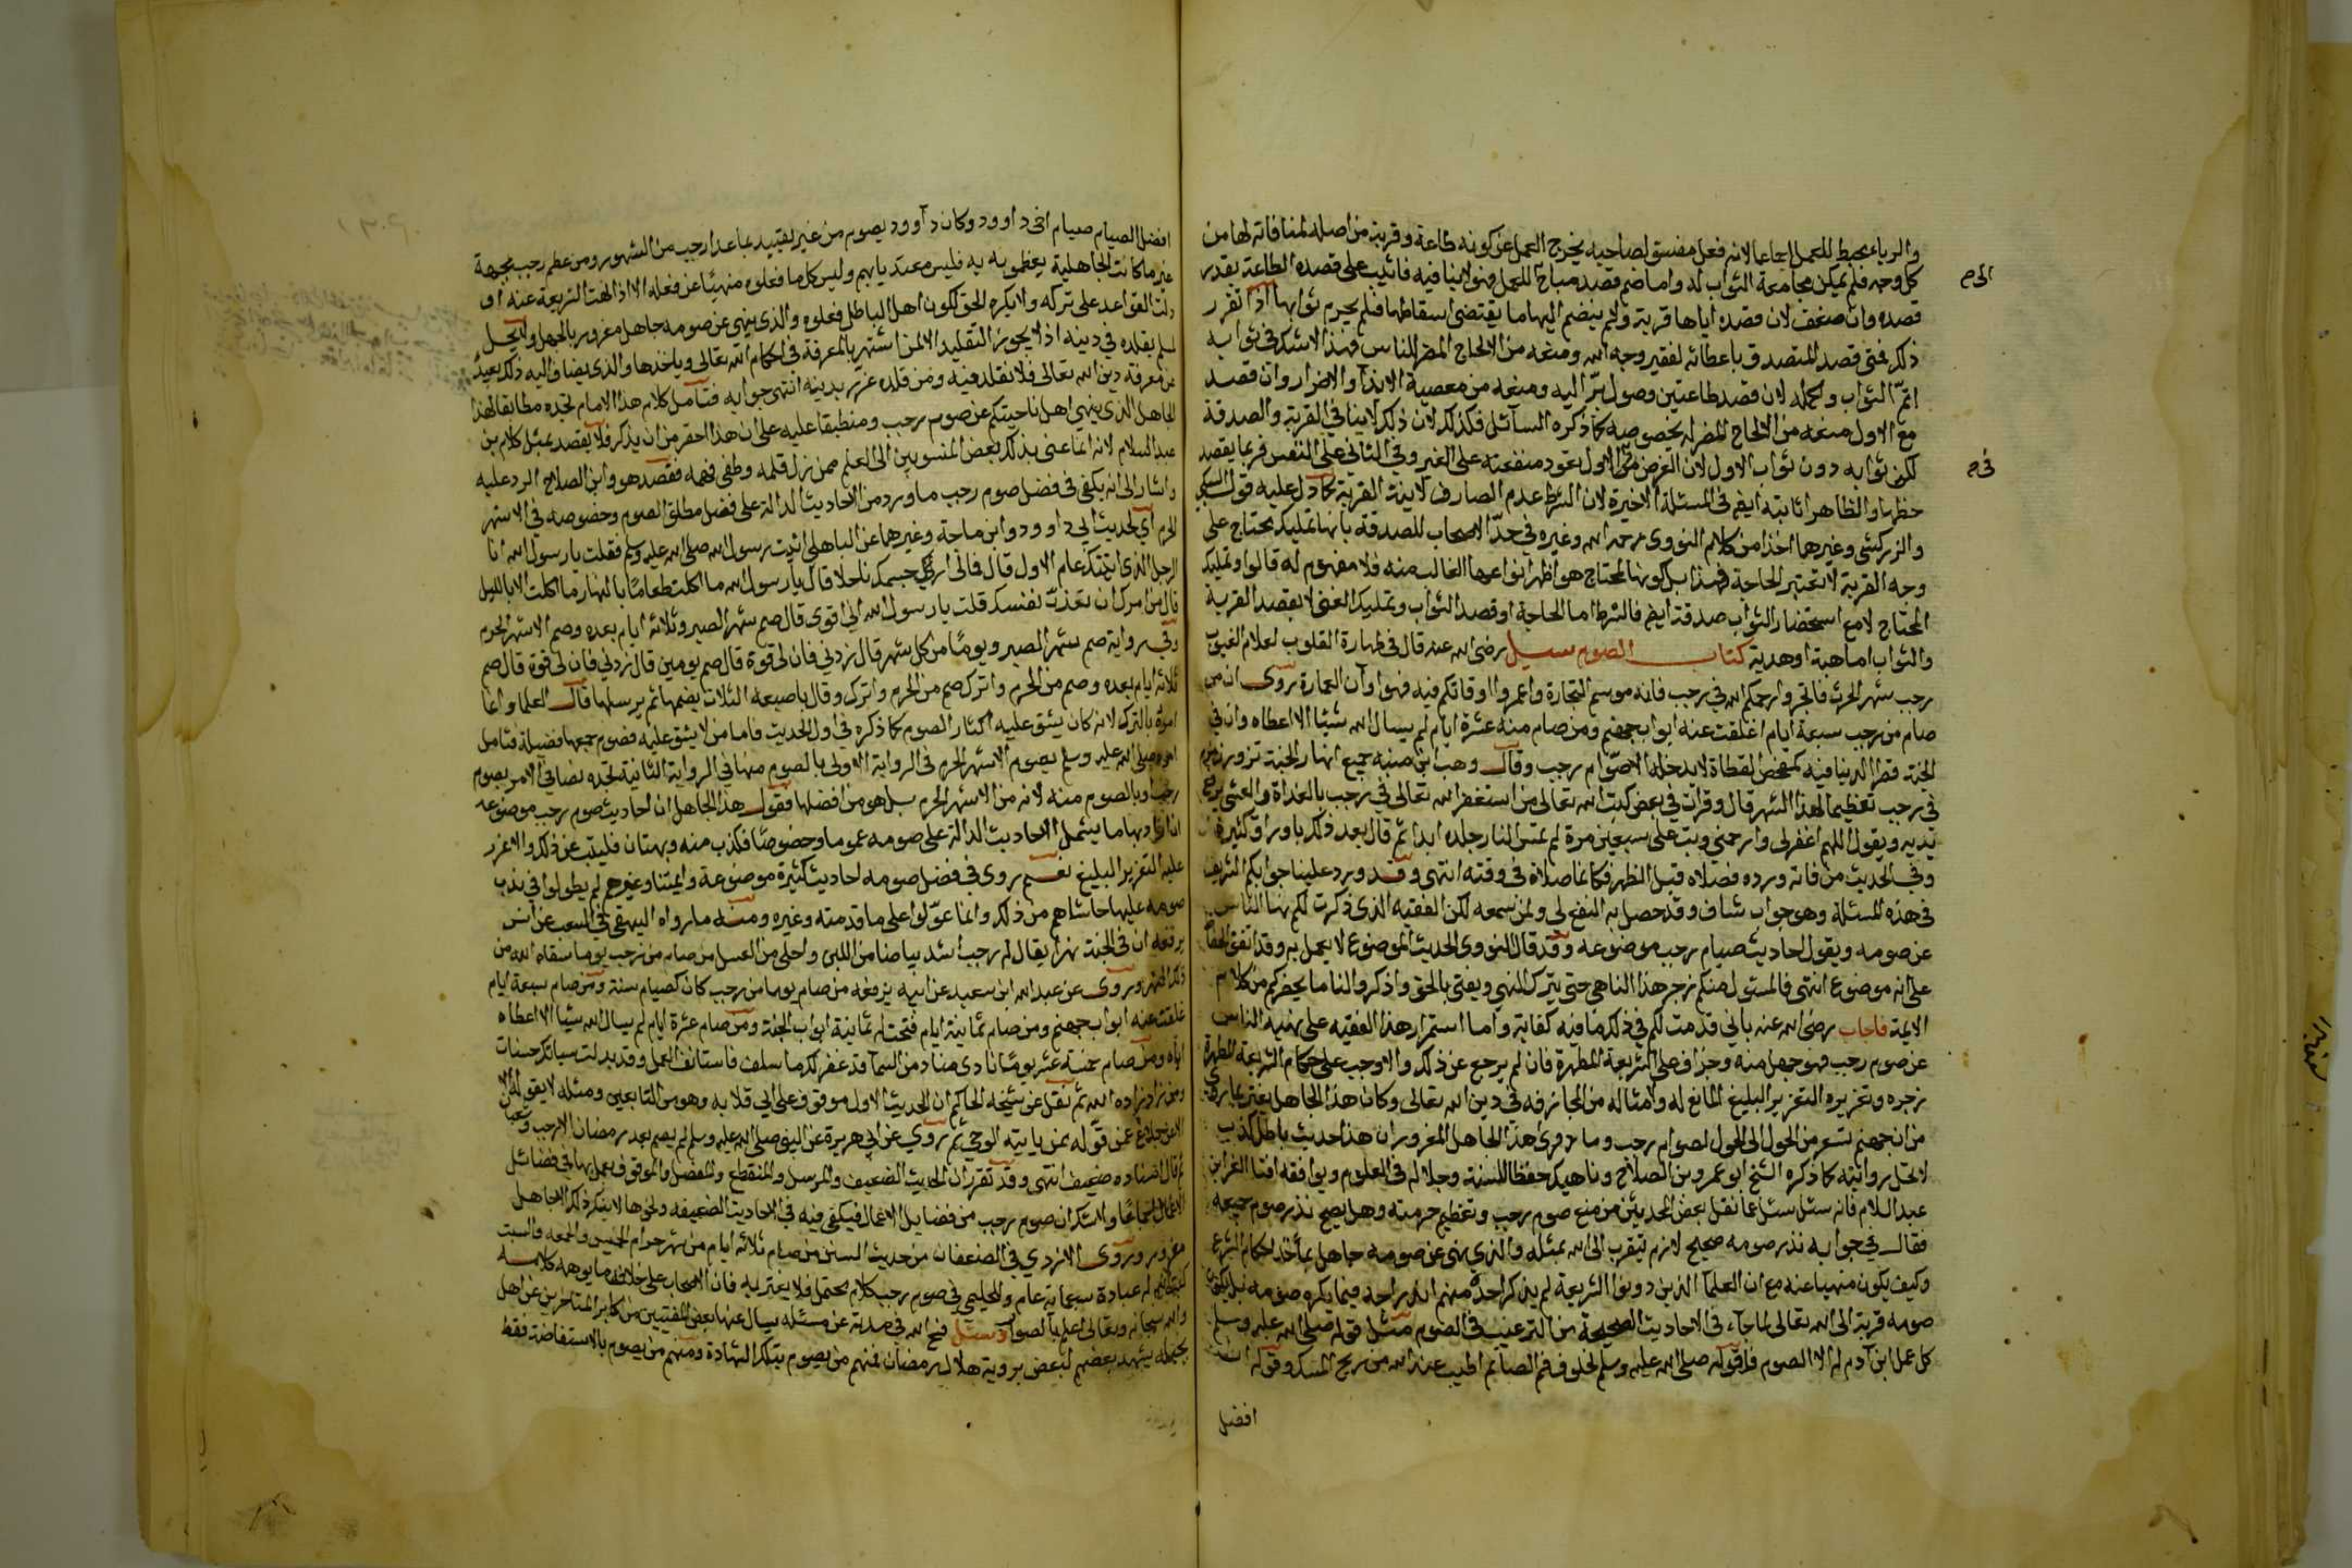 والرياء محبط للعمل اجماعا لانه فعل مفسق لصاحبه يخرج العمل عن كونه طاعة وقربة من اصله لمنافاته لها من
كل وجه فلم يمكن مجامعة الثواب له واما ضم قصد مباح للعمل فهو لا ينافيه فاثيب على قصده الطاعة بقدر
قصده وان ضعف لان قصده اياها قربة ولم ينضم اليها ما يقتضي اسقاطها فلم يحرم ثوابها اذا تقرر
ذلك فمتى قصد المتصدق باعطائه لفقير وجه الله ومنعه من الالحاح المضر للناس فهذا لا شك في ثوابه
اتم الثواب واكمله لان قصد طاعتين وصول بر اليه ومنعه من معصية الايذاء والاضرار وان قصد
مع الاول منعه من الالحاح المضر له بخصوصه كما ذكره السائل فكذلك لان ذلك لا ينافي القربة والصدقة
لكن ثوابه دون ثواب الاول لان الغرض في الاول يعود منفعته على الغير وفي الثاني على النفس فربما يقصد
حظها والظاهر اثابته ايضا في المسئلة الاخيرة لان الشرط عدم الصارف لا نية القربة كما دل عليه قول السبكي
والزركشي وغيرهما اخذا من كلام النووي رحمه الله وغيره في حد الاصحاب للصدقة بانها تمليك محتاج على
وجه القربة لا تعتبر الحاجة فهذا بل كونها لمحتاج هو اظهر انواعها الغالب منه فلا مفهوم له قالوا وتمليك
المحتاج لا مع استحضار الثواب صدقة ايضا فالشرط اما الحاجة او قصد الثواب وتمليك الغني لا بقصد القربة
والثواب اما هبة او هدية كتاب الصوم سئل رضي الله عنه قال في طهارة القلوب لعلام الغيوب
رجب شهر الحرث فاتجروا رحمكم الله في رجب فانه موسم التجارة واعمروا اوقاتكم فيه فهو اوان العمارة روى ان من
صام من رجب سبعة ايام اغلقت عنه ابواب جهنم ومن صام منه عشرة ايام لم يسال الله شيئا الا اعطاه وان في
الجنة قصرا الدنيا فيه كمفحص القطاة لا يدخله الا صوام رجب وقال وهب ابن منبه جميع انهار الجنة تزور زمزم
في رجب تعظيما لهذا الشهر قال وقرات في بعض كتب الله تعالى من استغفر الله تعالى في رجب بالغداة والعشي يرفع
يديه ويقول اللهم اغفر لي وارحمني وتب علي سبعين مرة لم تمس النار جلده ابدا ثم قال بعد ذلك باوراق كثيرة
وفي الحديث من فاته ورده فصلاه قبل الظهر فكانما صلاه في وقته انتهى وقد ورد علينا جوابكم الشريف
في هذه المسئلة وهو جواب شاف وقد حصل به النفع لي ولمن سمعه لكن الفقيه الذي ذكرت لكم نها الناس
عن صومه ويقول احاديث صيام رجب موضوعه وقد قال النووي الحديث الموضوع لا يعمل به وقد اتفق الحفاظ
على انه موضوع انتهى فالمسئول منكم زجر هذا الناهي حتى يترك النهي ويفتي بالحق واذكروا لنا ما يحضركم من كلام
الايمة فاجاب رضي الله عنه باني قدمت لكم في ذلك ما فيه كفاية واما استمرار هذا الفقيه على نهيه الناس
عن صوم رجب فهو جهل منه وجزاف على الشريعة المطهرة فان لم يرجع عن ذلك والا وجب على حكام الشريعة المطهرة
زجره وتعزيره التعزير البليغ المانع له ولامثاله من المجازفه في دين الله تعالى وكان هذا الجاهل يغتر بما روي
من ان جهنم تسعر من الحول الى الحول لصوام رجب وما درى هذا الجاهل المغرور ان هذا حديث باطل كذب
لا تحل روايته كما ذكره الشيخ ابو عمرو بن الصلاح وناهيك حفظا للسنة وجلالة في العلوم ويوافقه افتا العز ابن
عبد السلام فانه سئل عما نقل بعض المحدثين من منع صوم رجب وتعظيم حرمته وهل يصح نذر صوم جميعه
فقال في جوابه نذر صومه صحيح لازم يتقرب الى الله بمثله والذي نهى عن صومه جاهل بماخذ احكام الشرع
وكيف يكون منهيا عنه مع ان العلما الذين دونوا الشريعة لم يذكر احد منهم اندراجه فيما يكره صومه بل يكون
صومه قربة الى الله تعالى لما جاء في الاحاديث الصحيحة من الترغيب في الصوم مثل قوله صلى الله عليه وسلم
كل عمل ابن آدم له الا الصوم وقوله صلى الله عليه وسلم لخلوف فم الصائم اطيب عند الله من ريح المسك وقوله ان
افضل
الى ح
في ح
افضل الصيام صيام اخي داوود وكان داوود يصوم من غير تقييد بما عدا رجب من الشهور ومن عظم رجب بجهة
غير ما كانت الجاهلية يعظمونه به فليس مقتديا بهم وليس كل ما فعلوه منهيا عن فعله الا اذا نهت الشريعة عنه او
دلت القواعد على تركه ولا يكره الحق لكون اهل الباطل فعلوه والذي ينهى عن صومه جاهل مغرور بالجهل ولا يحل
لمسلم يقلده في دينه اذ لا يجوز التقليد الا لمن اشتهر بالمعرفة في احكام الله تعالى وماخذها والذي يضاف اليه ذلك بعيد
عن معرفة دين الله تعالى فلا يقلد فيه ومن قلده غرر بدينه انتهى جوابه فتامل كلام هذا الامام تجده مطابقا لهذا
الجاهل الذي ينهي اهل ناحيتكم عن صوم رجب ومنطبقا عليه على ان هذا احقر من ان يذكر فلا يقصد بمثل كلام بن
عبد السلام لانه انما عنى بذلك بعض المنسوبين الى العلم ممن زل قلمه وطغى فهمه فقصد هو وابن الصلاح الرد عليه
واشار الى انه يكفي في فضل صوم رجب ما ورد من الاحاديث الدالة على فضل مطلق الصوم وخصوصه في الاشهر
الحرم اي لحديث ابي داوود وابن ماجة وغيرهما عن الباهلي اتيت رسول الله صلى الله عليه وسلم فقلت يا رسول الله انا
الرجل الذي اتيتك عام الاول قال فمالي ارى جسمك ناحلا قال يا رسول الله ما اكلت طعاما بالنهار ما اكلت الا بالليل
قال من امرك ان تعذب نفسك قلت يا رسول الله اني اقوى قال صم شهر الصبر وثلاثه ايام بعده وصم الاشهر الحرم
وفي رواية صم شهر الصبر ويوما من كل شهر قال زدني فان لي قوة قال صم يومين قال زدني فان لي قوة قال صم
ثلاثه ايام بعده وصم من الحرم واترك صم من الحرم واترك وقال باصبعه الثلاث يضمها ثم يرسلها قال العلما وانما
امره بالترك لانه كان يشق عليه اكثار الصوم كما ذكره في اول الحديث فاما من لا يشق عليه فصوم جميعها فضيلة فتامل
امره صلى الله عليه وسلم بصوم الاشهر الحرم في الرواية الاولى وبالصوم منها في الرواية الثانية تجده نصا في الامر بصوم
رجب او بالصوم منه لانه من الاشهر الحرم بل هو من افضلها فقول هذا الجاهل ان احاديث صوم رجب موضوعه
ان اراد بها ما يشمل الاحاديث الدالة على صومه عموما وخصوصا فكذب منه وبهتان فليتب عن ذلك والا عزر
عليه التعزير البليغ نعم روى في فضل صومه احاديث كثيرة موضوعة وايمتنا وغيرهم لم يعولوا في ندب
صومه عليها حاشاهم من ذلك وانما عولوا على ما قدمته وغيره ومنه ما رواه البيهقي في الشعب عن انس
يرفعه ان في الجنة نهرا يقال له رجب اشد بياضا من اللبن واحلى من العسل من صام من رجب يوما سقاه الله من
ذلك النهر وروى عن عبد الله ابن سعيد عن ابيه يرفعه من صام يوما من رجب كان كصيام سنة ومن صام سبعة ايام
غلقت عنه ابواب جهنم ومن صام ثمانية ايام فتحت له ثمانية ابواب الجنة ومن صام عشرة ايام لم يسال الله شيئا الا اعطاه
اياه ومن صام خمسة عشر يوما نادى مناد من السما قد غفر لك ما سلف فاستانف العمل وقد بدلت سياتك حسنات
ومن زاد زاده الله ثم نقل عن شيخه الحاكم ان الحديث الاول موقوف على ابي قلابه وهو من التابعين ومثله لا يقوله
الا عن بلاغ عمن قوله ممن ياتيه الوحي ثم روي عن ابي هريرة عن النبي صلى الله عليه وسلم لم يصم بعد رمضان الا رجب وشعبان
ثم قال اسناده ضعيف انتهى وقد تقرر ان الحديث الضعيف والمرسل والمنقطع والمعضل والموقوف يعمل بها في فضائل
الاعمال اجماعا ولا شك ان صوم رجب من فضايل الاعمال فيكفي فيه في الاحاديث الضعيفه ونحوها لا ينكر ذلك الا جاهل
مغرور وروى الازدي في الضعفا من حديث السنن من صام ثلاثه ايام من شهر حرام الخميس والجمعه والسبت
كتب الله له عبادة سبعماية عام والحليمي في صوم رجب كلام محتمل فلا يغتر به فان الاصحاب على خلاف ما يوهمه كلامه
والله سبحانه وتعالى اعلم بالصواب وسئل فسح الله في مدته عن مسئله يسال عنها بعض المفتيين من اكابر المتاخرين عن اهل
بجيله يشهد بعضهم لبعض بروية هلال رمضان فمنهم من يصوم بتلك الشهادة ومنهم من يصوم بالاستفاضة فقط